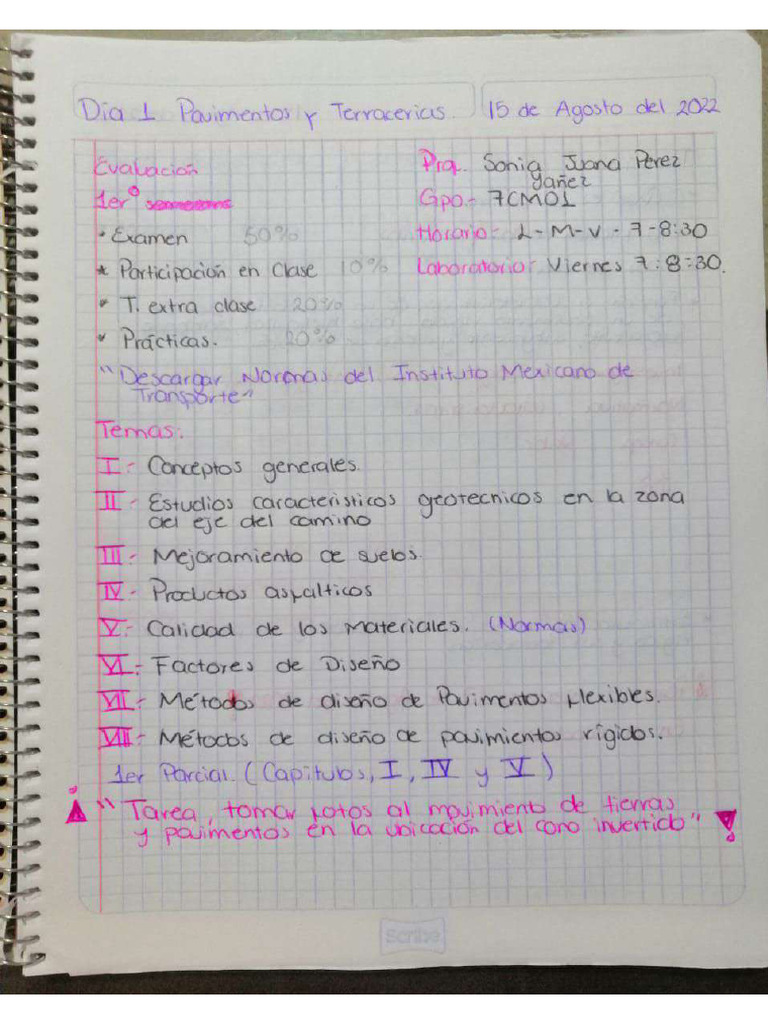 Día 1 Pavimentos y Terracerias. 15 de Agosto del 2022
Evaluación
1er°
Prq. Sonia Juana Perez
Yañez
Gpo.- 7CM01
· Examen 50%
Horario:- L-M-V-7-8:30
* Participación en Clase 10%
Laboratorio- Viernes 7:8:30.
* T. extra clase 20%
* Prácticas. 20%
"Descargar Normas del Instituto Mexicano de
Transporte"
Temas:
I.- Conceptos generales.
II- Estudios caracteristicos geotecnicos en la zona
del eje del camino
III- Mejoramiento de suelos.
IV- Productos asfalticos
V- Calidad de los Materiales. (Normas)
VI.- Factores de Diseño
VII- Métodos de diseño de Pavimentos flexibles.
VIII- Métodos de diseño de pavimientos rígidos.
1er Parcial. (Capitulos, I, IV y V)
"Tarea, tomar fotos al movimiento de tierras
y pavimentos en la ubicación del cono invertido"
Scribe